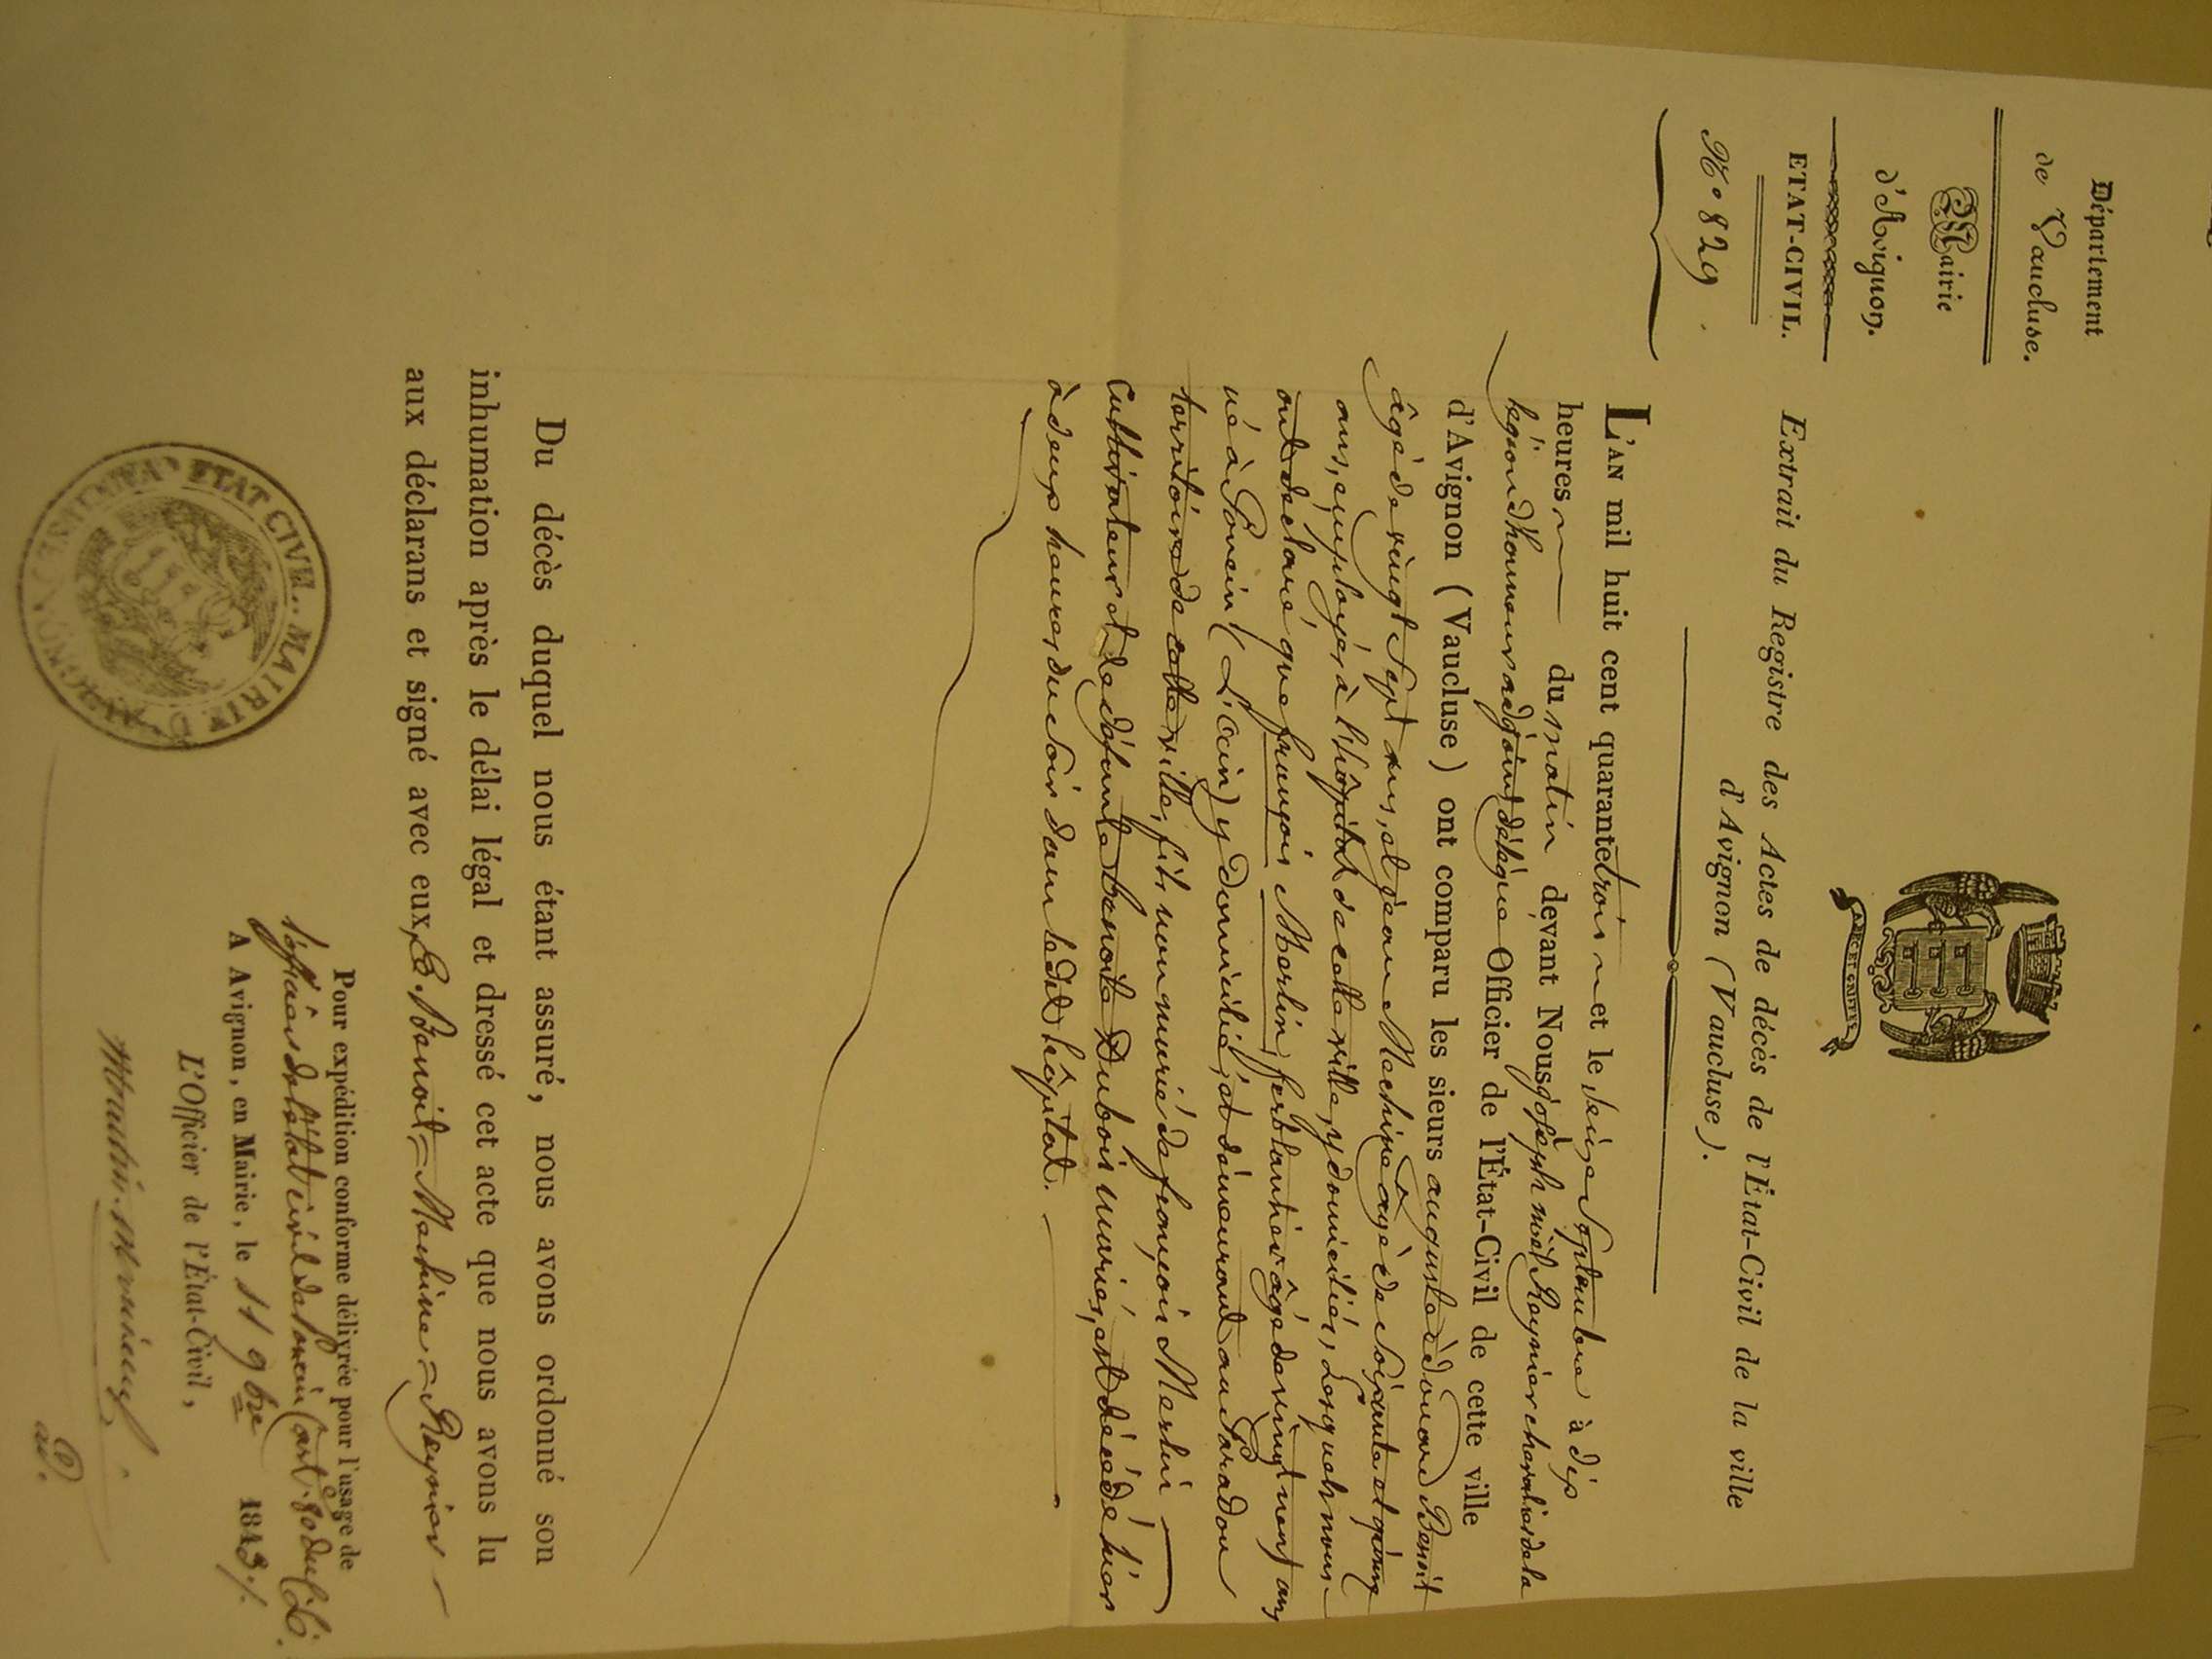 Département
de Vaucluse.
Mairie
d'Avignon.
ETAT-CIVIL.
N.° 829.
Extrait du Registre des Actes de décès de l'État-Civil de la ville
d'Avignon (Vaucluse).
L'AN mil huit cent quarante trois et le seize Septembre à dix
heures du matin devant Nous joseph noël Reynier chevalier de la
légion d'honneur adjoint délégué Officier de l'État-Civil de cette ville
d'Avignon (Vaucluse) ont comparu les sieurs auguste édouard Benoit
âgé de vingt Sept ans, et jean Machine âgé de Soixante et quinze
ans, employés à l'hôpital de cette ville, y domiciliés, Lesquels nous
ont déclaré que françois Martin, ferblantier âgé de vingt neuf ans
né à Poncin (L'ain) y domicilié, et démeurant au Paradou
territoire de cette ville, fils non marié de françois Martin
Cultivateur et de défunte benoite Dubois mariés, est décédé hier
à deux heures du Soir dans ledit hôpital.
Du décès duquel nous étant assuré, nous avons ordonné son
inhumation après le délai légal et dressé cet acte que nous avons lu
aux déclarans et signé avec eux, E. Benoit = Machine = Reynier
Pour expédition conforme délivrée pour l'usage de
l'officier de l'état civil de Poncin (art. 80 du C. C.
A Avignon, en Mairie, le 11 9bre 1843 ./.
L'Officier de l'État-Civil,
ETAT CIVIL.. MAIRIE D'AVIGNON